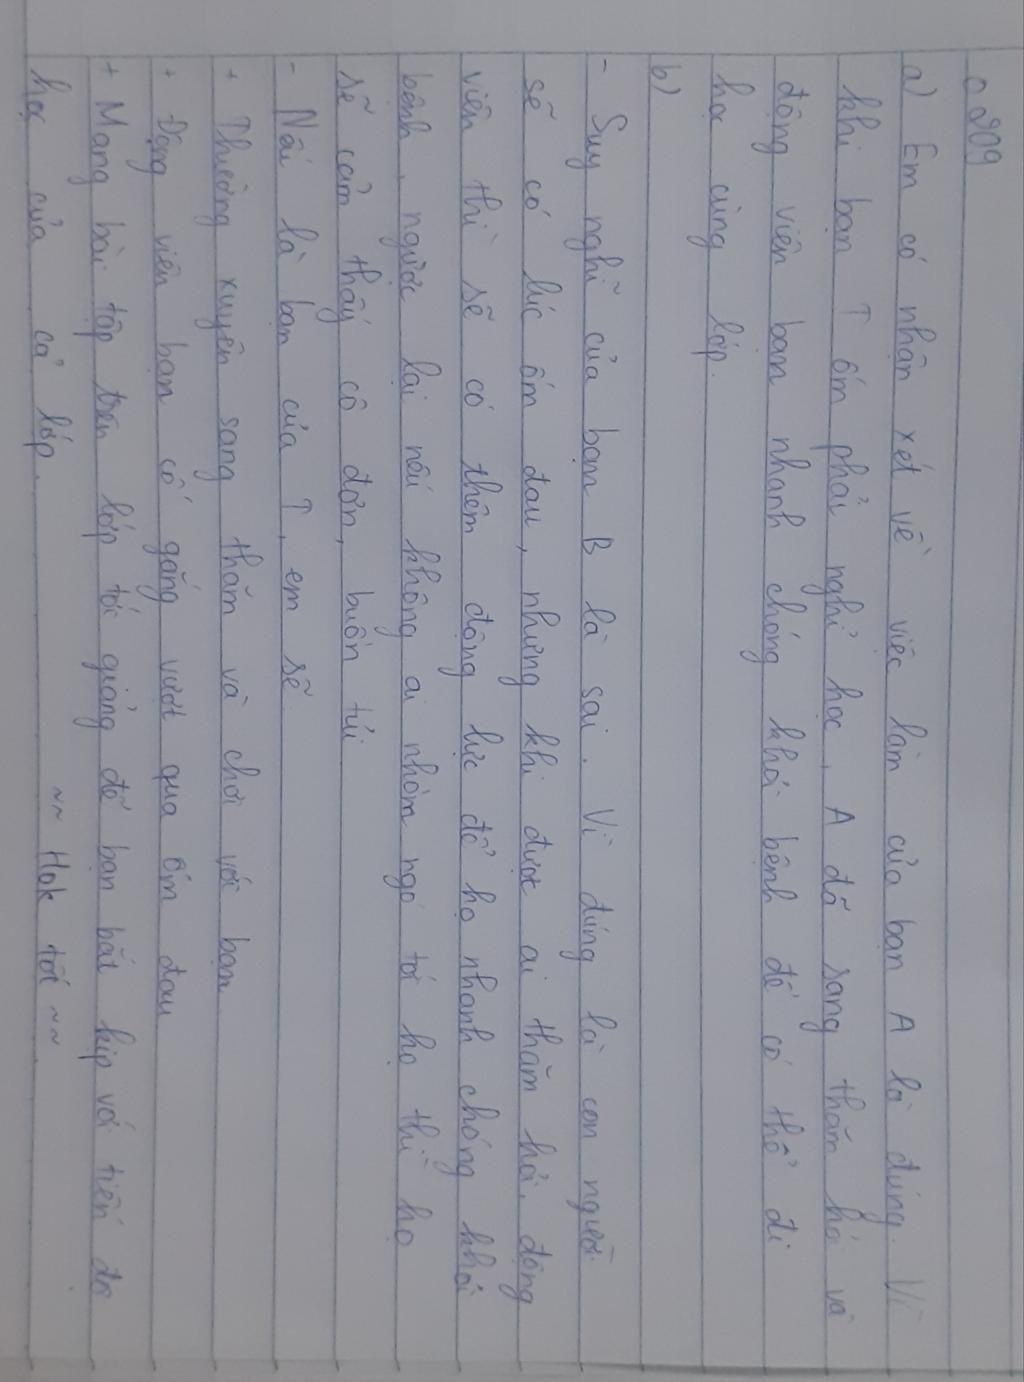 a) Em có nhận xét về việc làm của bạn A là đúng. Vì
khi bạn T ốm phải nghỉ học, A đã sang thăm hỏi và
động viên bạn nhanh chóng khỏi bệnh để có thể đi
học cùng lớp.
b)
- Suy nghĩ của bạn B là sai. Vì đúng là con người
sẽ có lúc ốm đau, nhưng khi được ai thăm hỏi, động
viên thì sẽ có thêm động lực để họ nhanh chóng khỏi
bệnh, ngược lại nếu không ai nhòm ngó tới họ thì họ
sẽ cảm thấy cô đơn, buồn tủi
- Nếu là bạn của T, em sẽ
+ Thường xuyên sang thăm và chơi với bạn.
+ Động viên bạn cố gắng vượt qua ốm đau
+ Mang bài tập trên lớp tới giảng để bạn bắt kịp với tiến độ
học của cả lớp.
~~ Hok tốt ~~